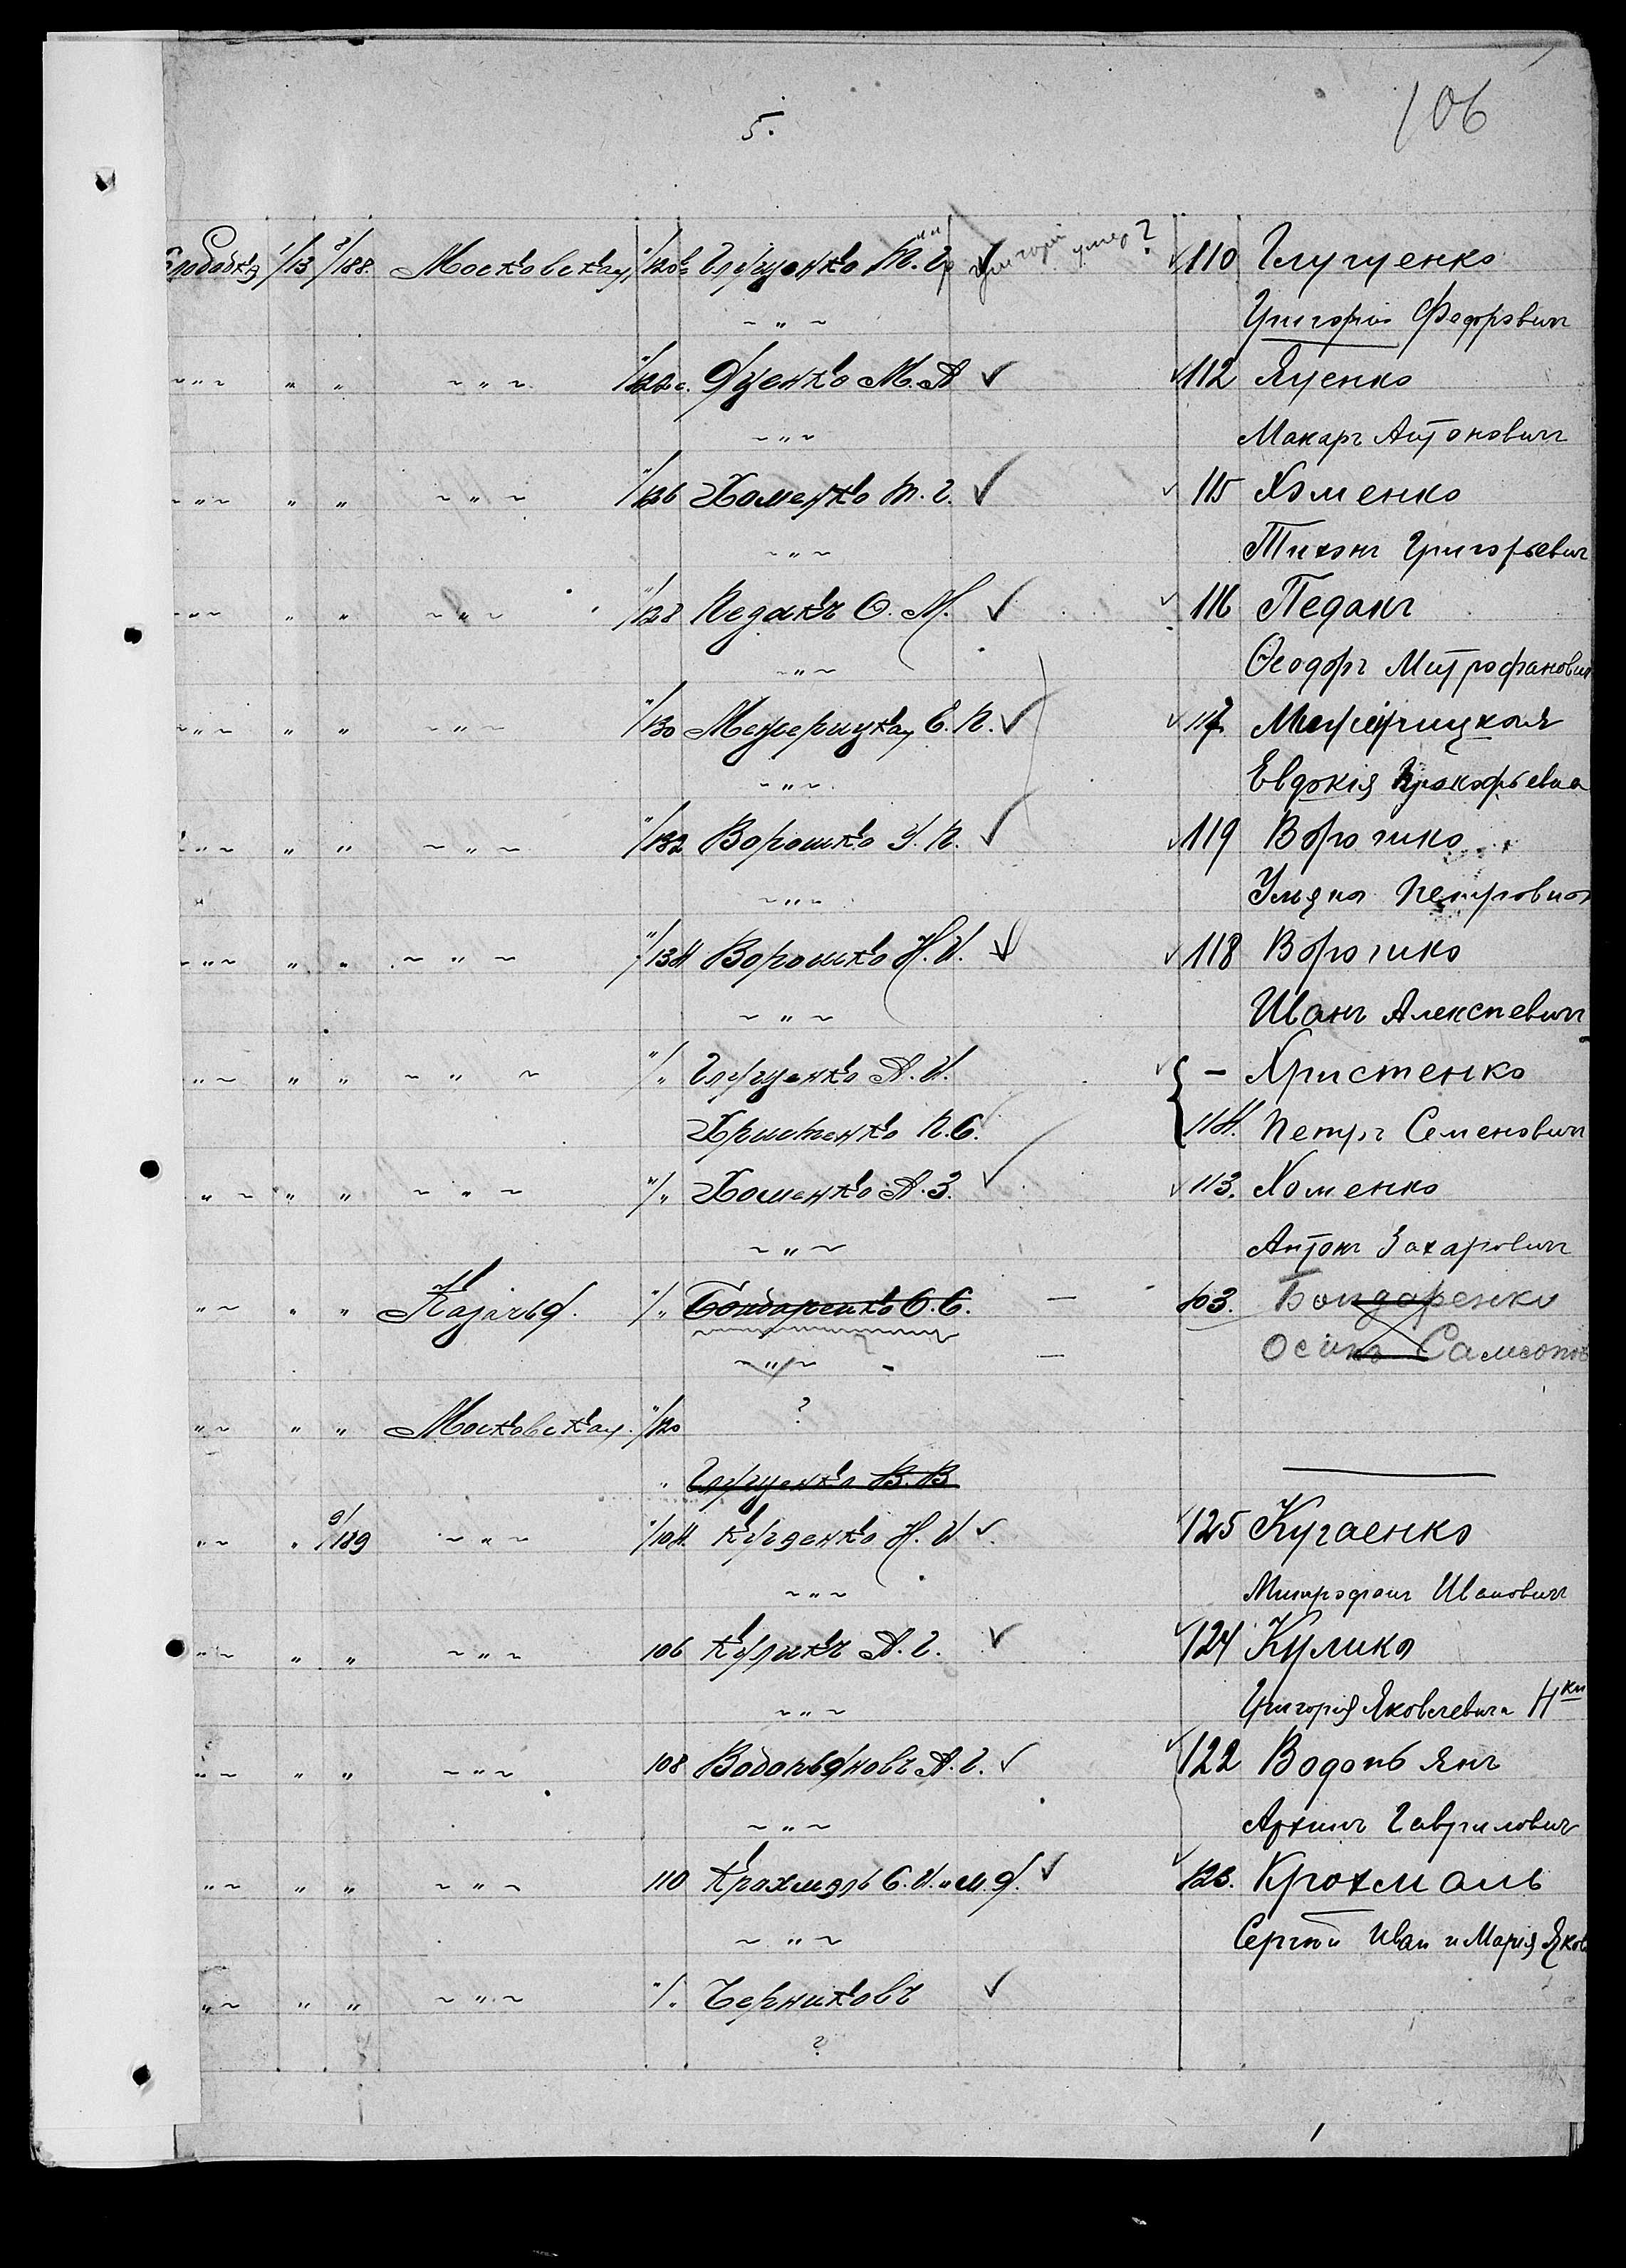 5.
106
Слободка 1/13 8/188. Московская "/120а Глущенко Т. Г. Григорій умер? 110 Глущенко
~ " ~ Григорій Федорович
~ " ~ " " ~ " ~ "/122а. Яценко М. А 112 Яценко
~ " ~ Макаръ Антонович
~ " ~ " " ~ " ~ "/126 Хоменко Т. Г. 115 Хоменко
~ " ~ Тихонъ Григорьевич
~ " ~ " " ~ " ~ "/128 Педакъ Ѳ. М. 116 Педанъ
~ " ~ Ѳеодоръ Митрофанович
~ " ~ " " ~ " ~ "/130 Межерицкая Е. П. 117.
~ " ~ Евдокія Прокофьевна
~ " ~ " " ~ " ~ "/132 Ворошко У. П. 119
~ " ~ Ульяна Петровна
~ " ~ " " ~ " ~ "/134 Ворошко Н. И. 118
~ " ~ Иванъ Алексеевич
~ " ~ " " ~ " ~ "/" Глущенко А. И. – Христенко
Христенко П. С. 114. Петръ Семенович
" ~ " " ~ " ~ "/" Хоменко А. З. 113. Хоменко
~ " ~ Антонъ Захарович
" ~ " " "/" Бондаренко О. С. – 103. Бондаренко
~ " ~ – Осипъ Самсонов
" ~ " " Московская. "/120 ?
" Глущенко В. В
" ~ " 9/189 ~ " ~ "/104. Н. И 125
~ " ~ Митрофанъ Иванович
" ~ " " ~ " ~ 106 Куликъ А. Г. 124 Кулика
~ " ~ Григорія Яковлевича Нки
" ~ " " ~ " ~ 108 Водопьяновъ А. Г. 122 Водопьянъ
~ " ~ Архипъ Гаврилович
" ~ " " ~ " ~ 110 Крахмаль С. И. и М. Я. 123. Крохмаль
~ " ~ Сергій Иван и Марія Яков
" ~ " " ~ " ~ "/" Черниковъ
?